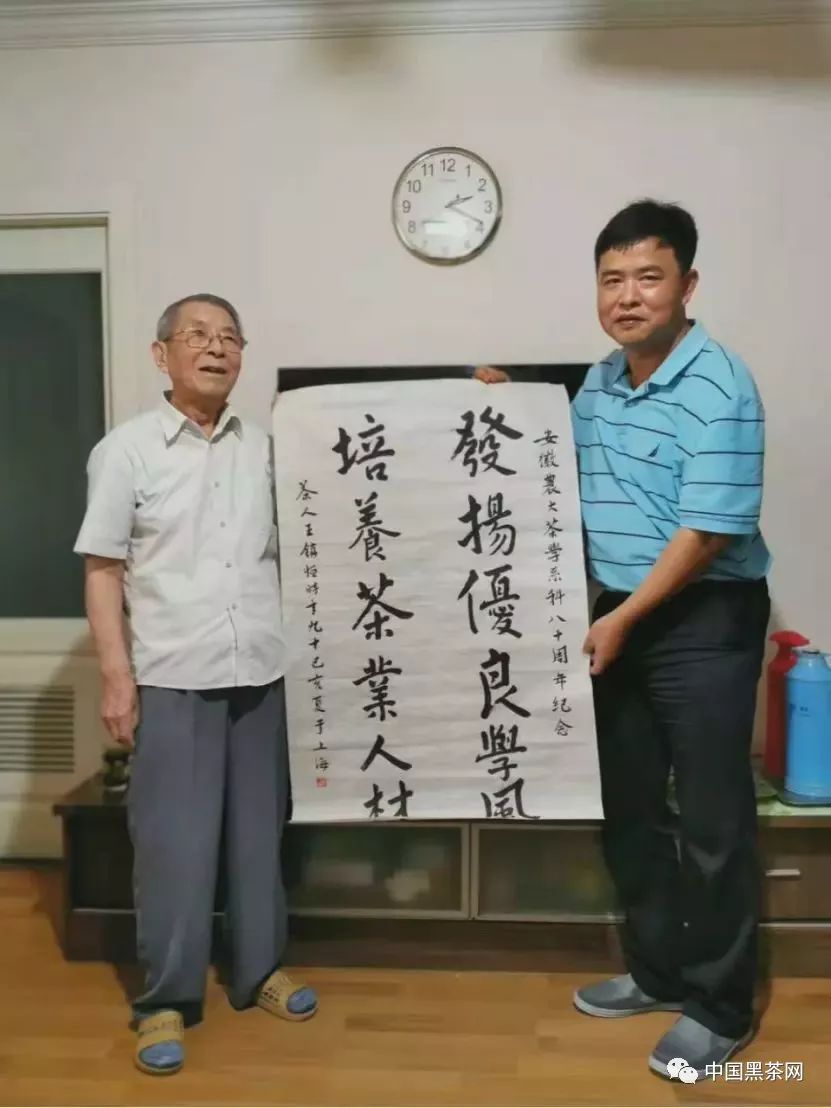 安徽農大茶學系科八十周年纪念
發揚優良學風
培養茶業人材
茶人王鎮恒時年九十己亥夏于上海
12
1
2
3
4
5
6
7
8
9
10
11
中国黑茶网